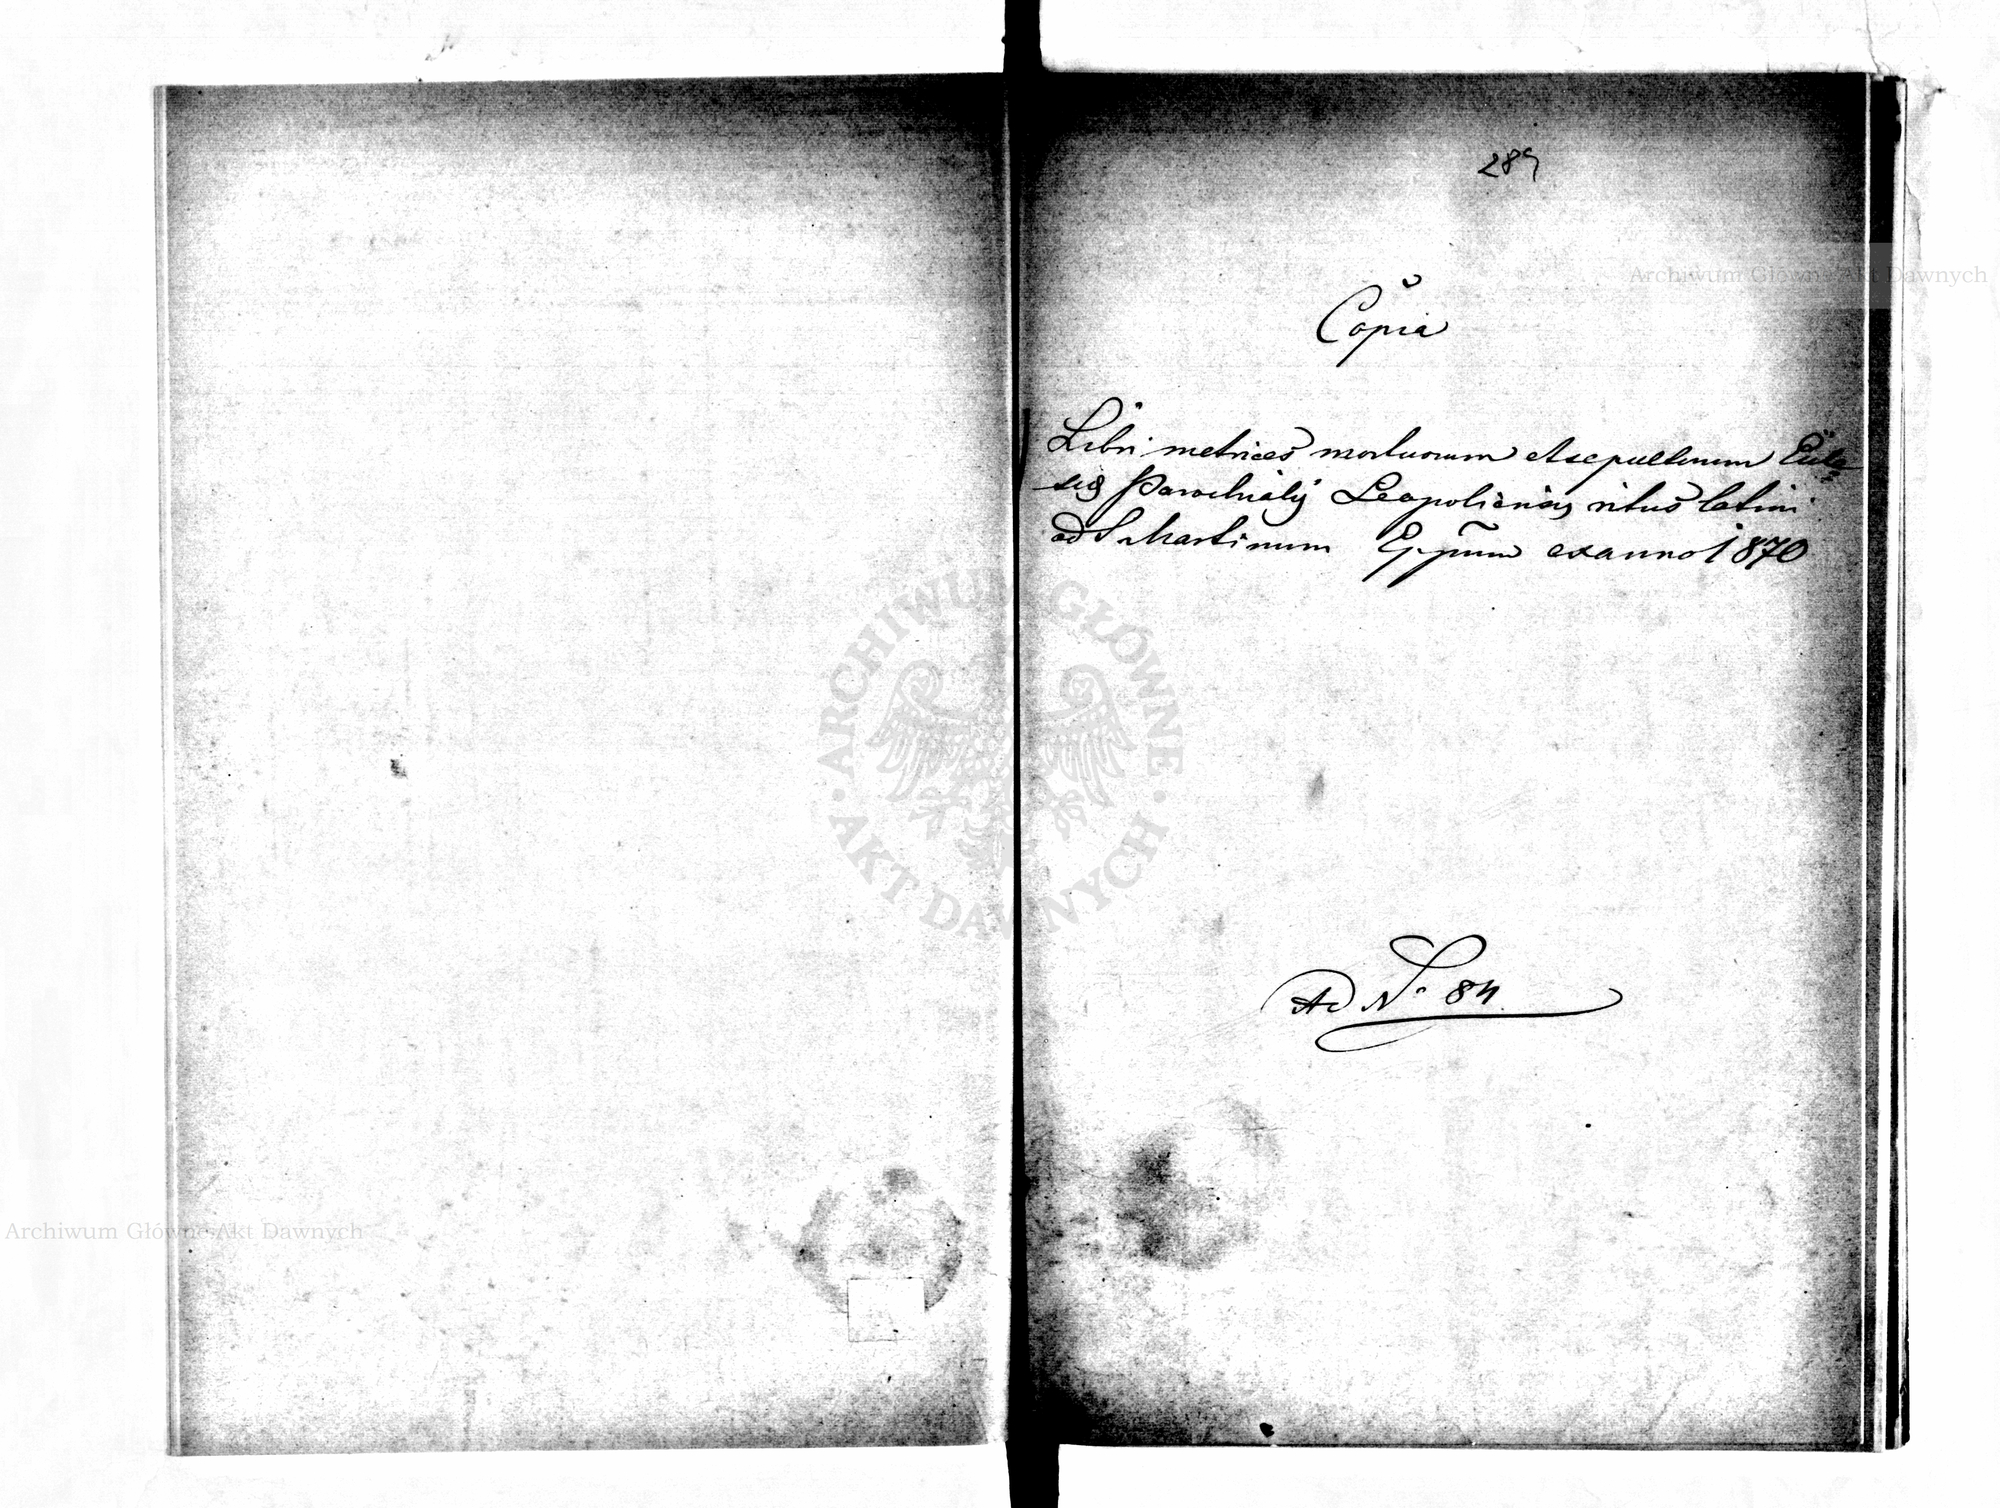 289
Copia
Libri metrices mortuorum et sepultorum Eccle
siæ Parochialis Leopoliensis ritus latini
ad S Martinum Eppum ex anno 1870
Ad No 84.
Archiwum Główne Akt Dawnych
ARCHIWUM GŁÓWNE · AKT DAWNYCH ·
Archiwum Główne Akt Dawnych